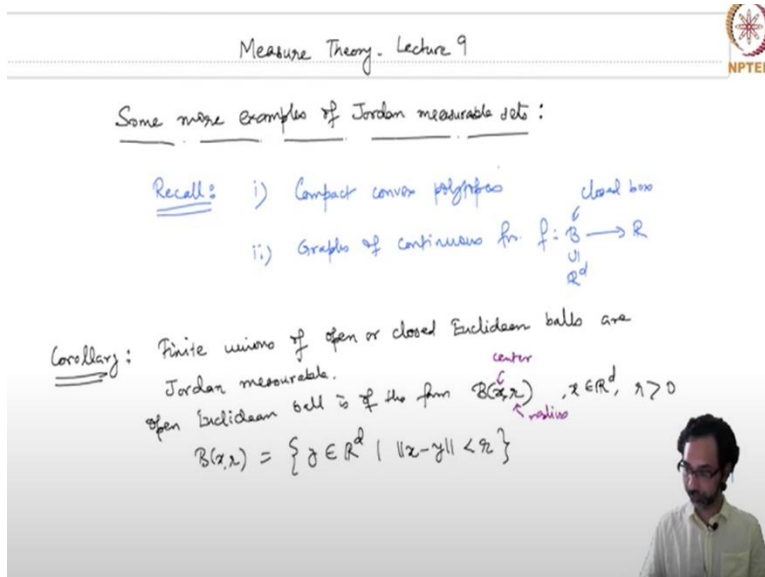 Measure Theory - Lecture 9
NPTEL
Some more examples of Jordan measurable sets :
Recall: i) Compact convex polytopes
closed box
ii) Graphs of continuous fn. f: B → R
⊆
R^d
Corollary: Finite unions of open or closed Euclidean balls are
Jordan measurable.
center
open Euclidean ball is of the form B(x,r) , x ∈ R^d, r > 0
radius
B(x,r) = { y ∈ R^d | ||x-y|| < r }